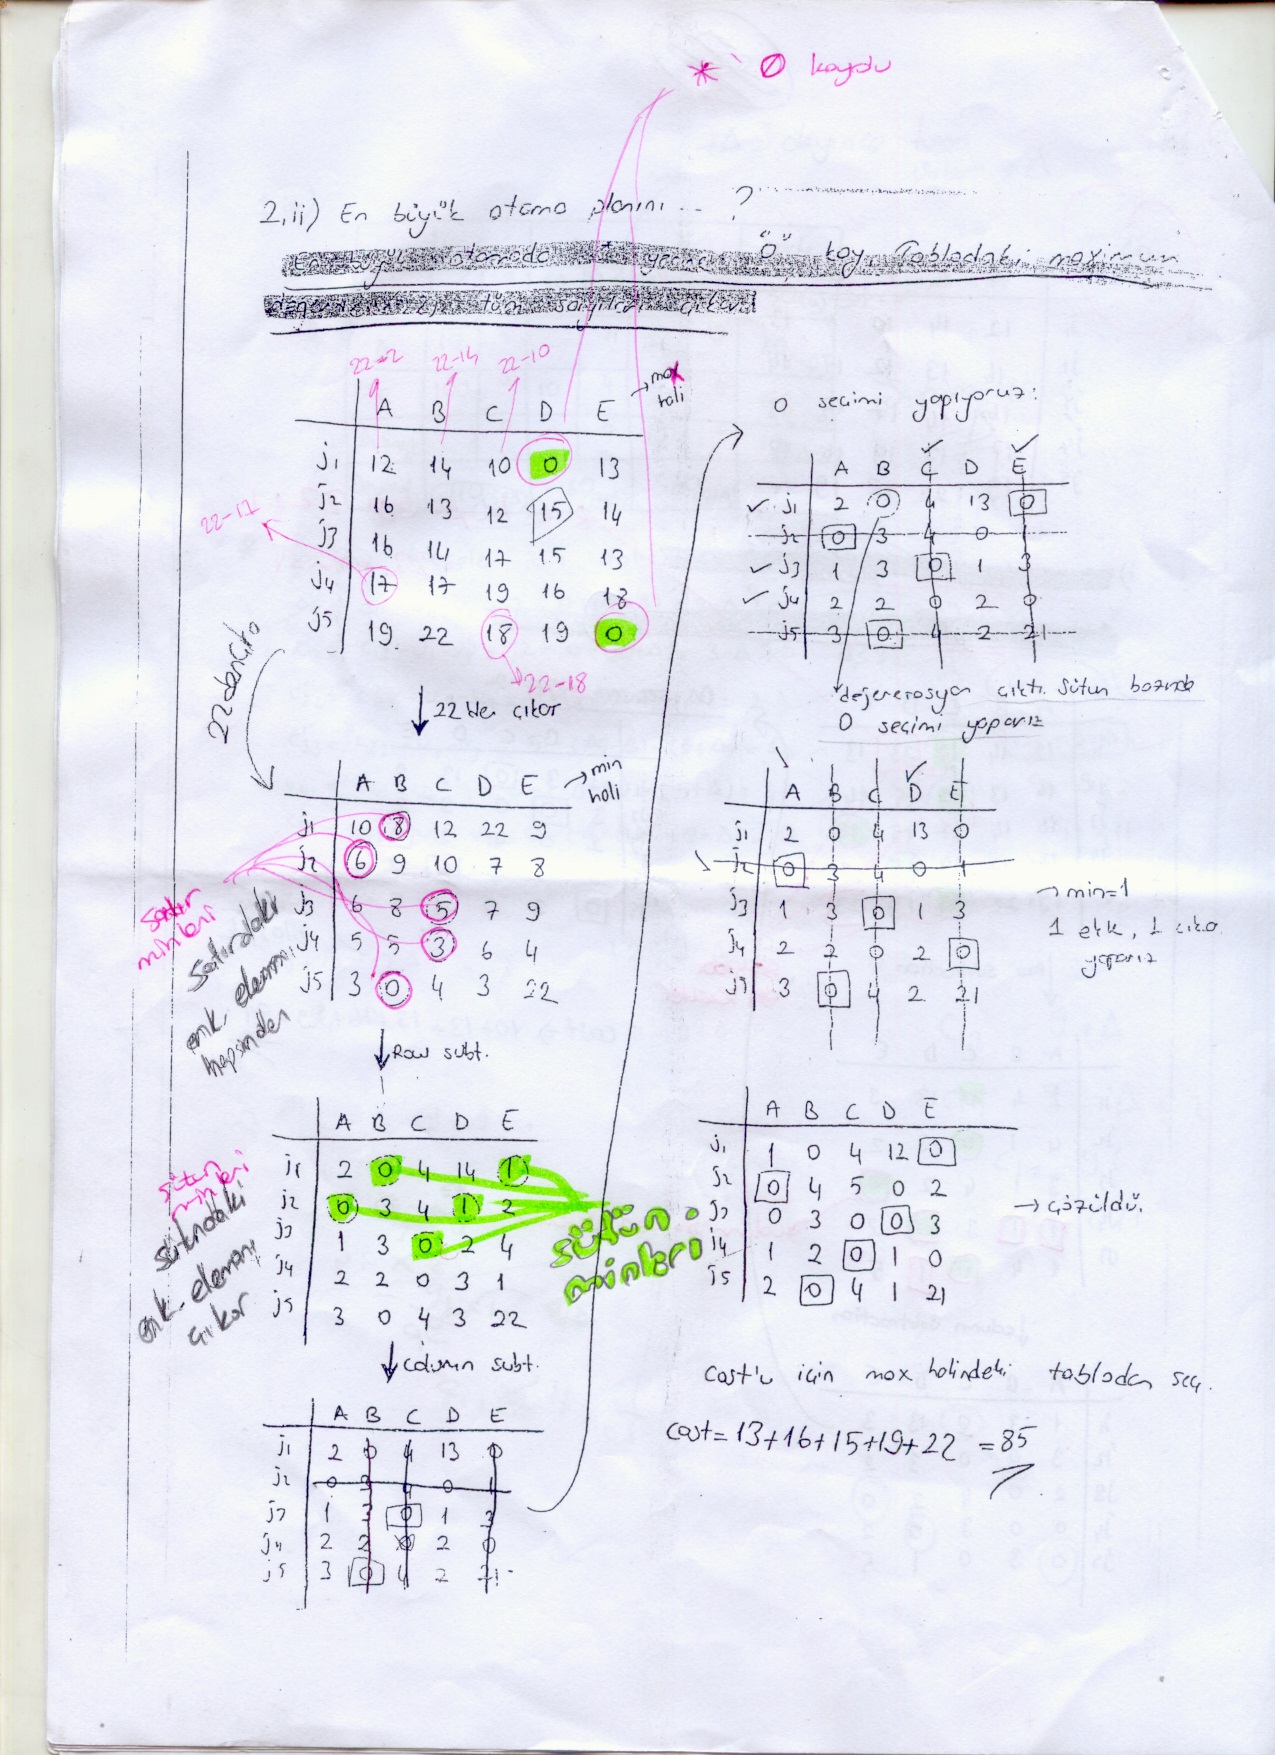 * 0 koydu
2,ii) En büyük atama planını... ?
En büyük atamada yerine "0" koy. Tablodaki maximum
tüm sayıları çıkar!
22-12 22-14 22-10
→ max hali
A B C D E
j1 12 14 10 0 13
j2 16 13 12 15 14
j3 16 14 17 15 13
j4 17 17 19 16 18
j5 19 22 18 19 0
22-17
22-18
22den çıkar
22'den çıkar
A B C D E → min hali
j1 10 8 12 22 9
j2 6 9 10 7 8
j3 6 8 5 7 9
j4 5 5 3 6 4
j5 3 0 4 3 22
satır minleri
Satırdaki enk. elemanı hepsinden
Row subt.
A B C D E
j1 2 0 4 14 1
j2 0 3 4 1 2
j3 1 3 0 2 4
j4 2 2 0 3 1
j5 3 0 4 3 22
sütun minleri
sütundaki enk. elemanı çıkar
sütun minleri
Column subt.
A B C D E
j1 2 0 4 13 0
j2 0 3 4 0 1
j3 1 3 0 1 3
j4 2 2 0 2 0
j5 3 0 4 2 21
0 seçimi yapıyoruz:
A B C D E
j1 2 0 4 13 0
j2 0 3 4 0 1
j3 1 3 0 1 3
j4 2 2 0 2 0
j5 3 0 4 2 21
dejenerasyon çıktı. Sütun bazında
0 seçimi yaparız
A B C D E
j1 2 0 4 13 0
j2 0 3 4 0 1
j3 1 3 0 1 3
j4 2 2 0 2 0
j5 3 0 4 2 21
→ min=1
1 ekk, 1 çıka
yaparız
A B C D E
j1 1 0 4 12 0
j2 0 4 5 0 2
j3 0 3 0 0 3
j4 1 2 0 1 0
j5 2 0 4 1 21
→ çözüldü.
Cost'u için max halindeki tablodan seç.
cost = 13+16+15+19+22 = 85